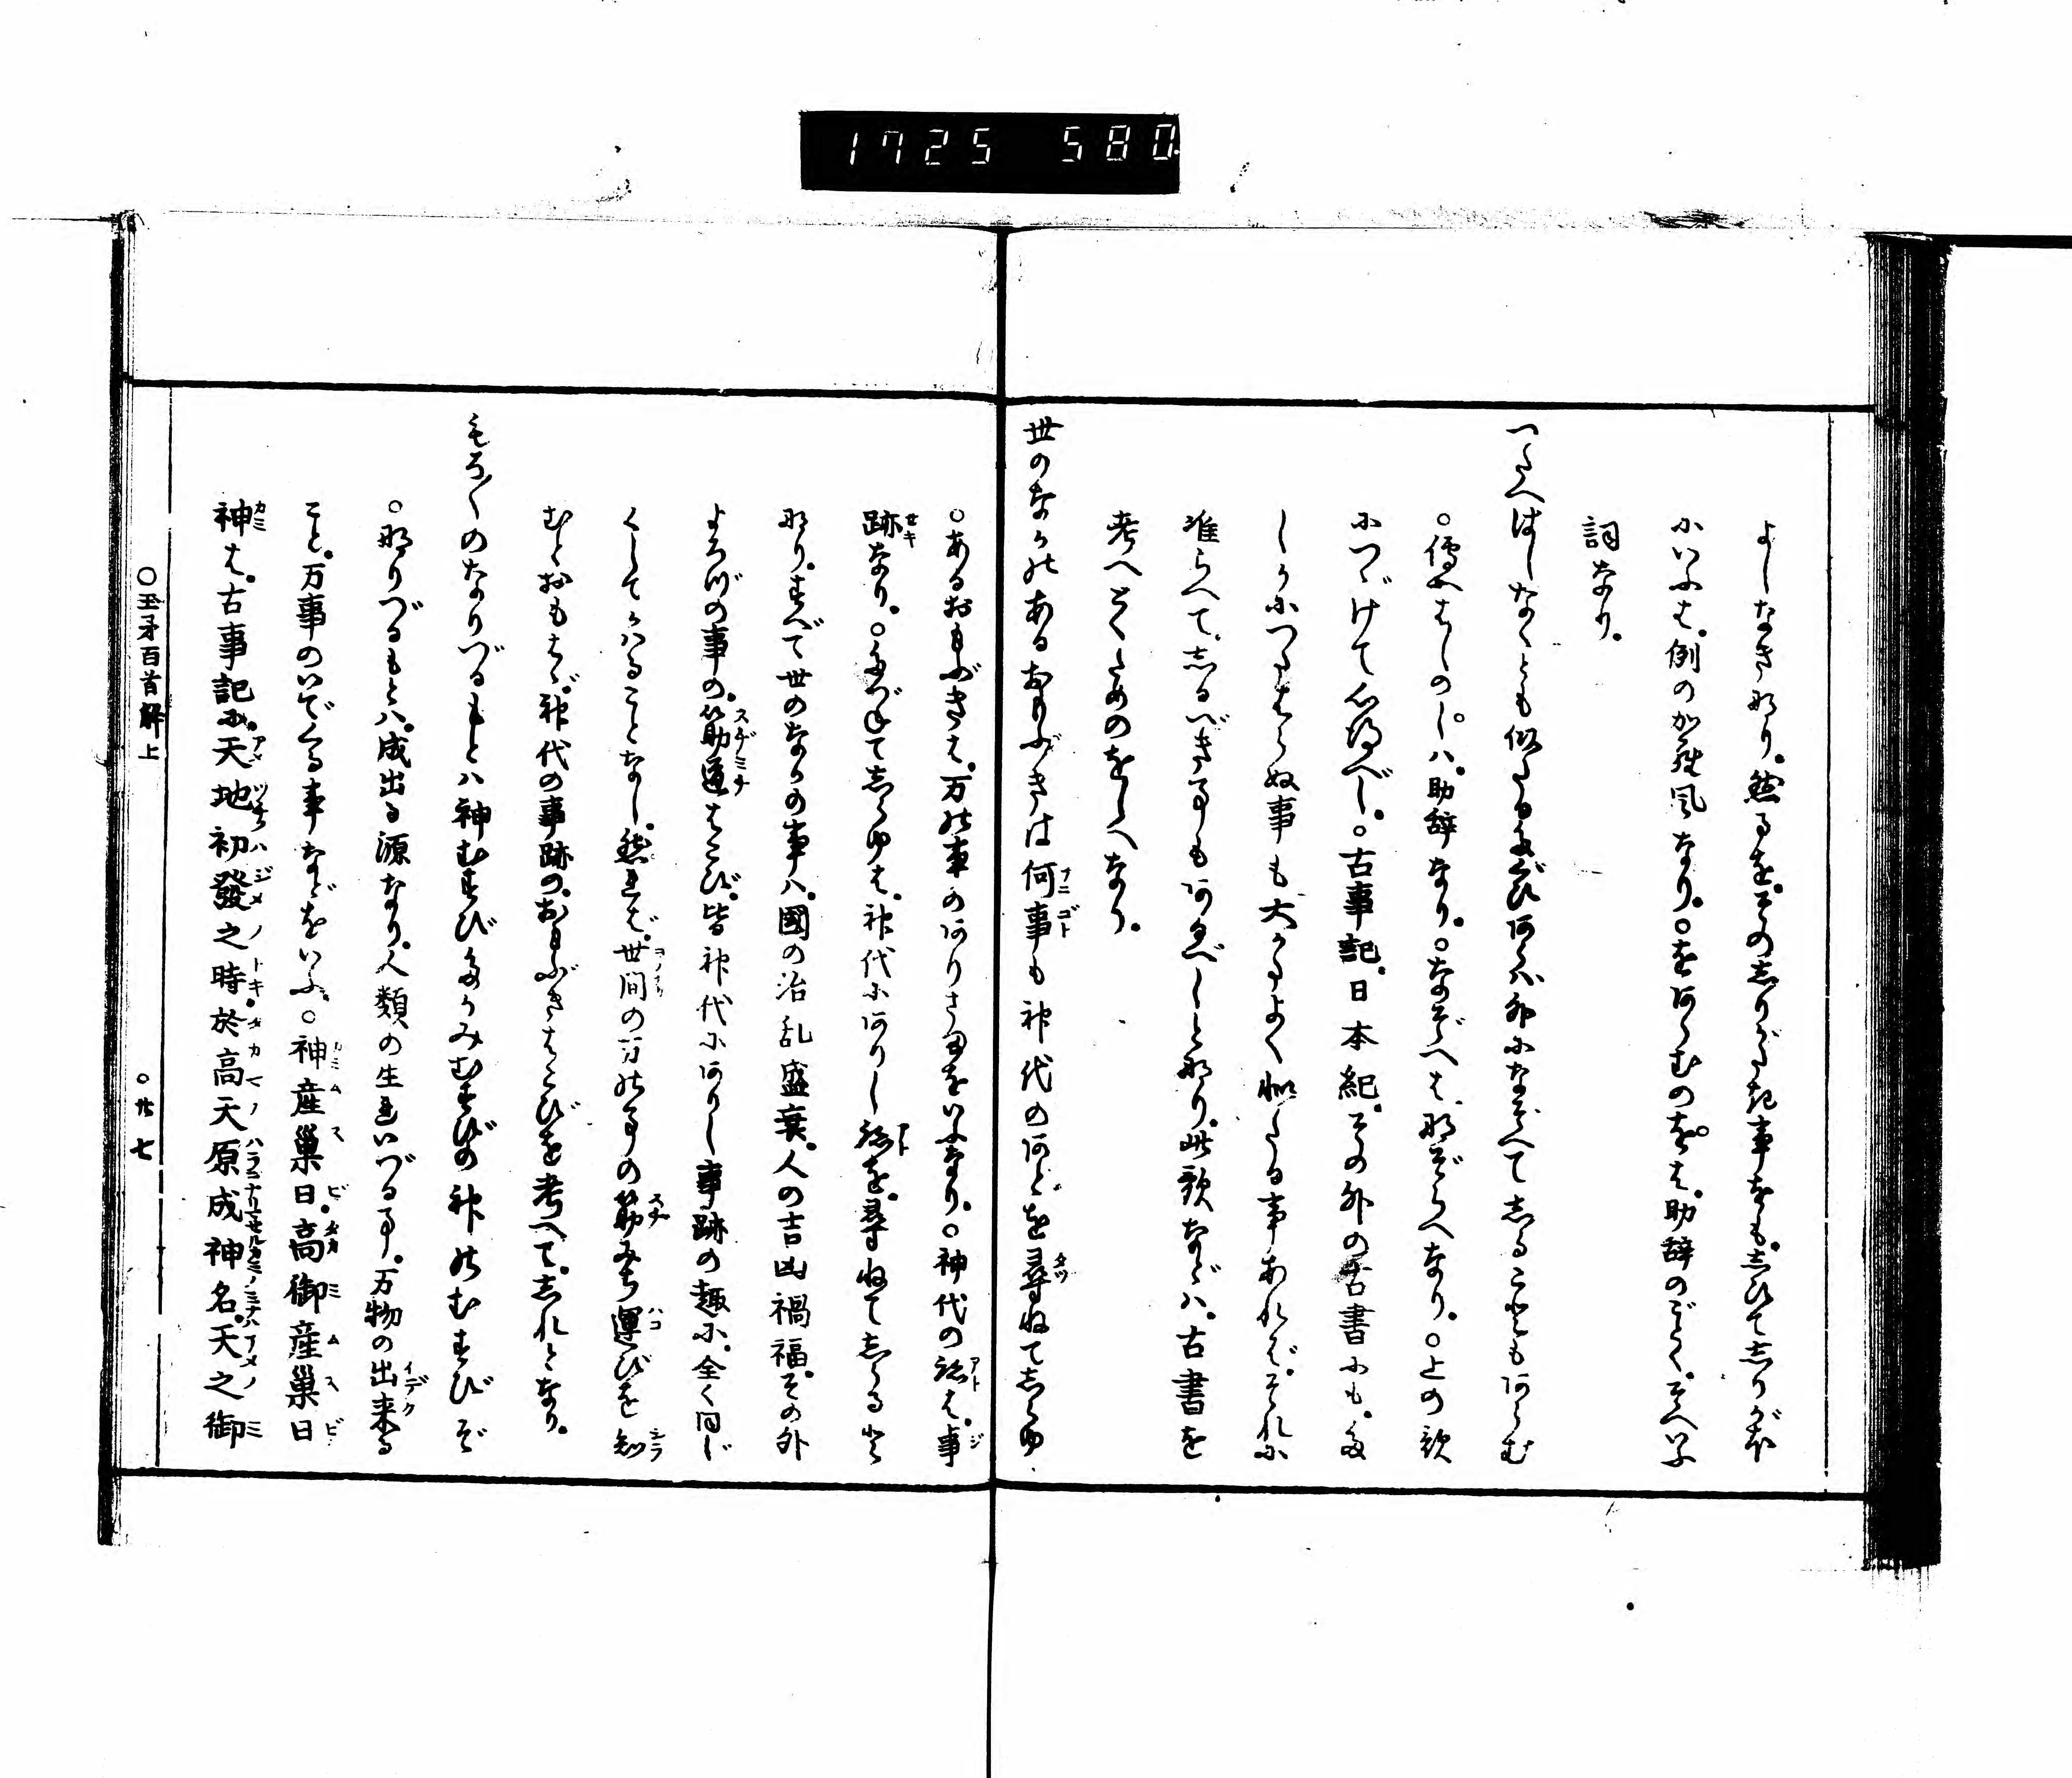 1725 580
よしなき那り。然るを。その志りがた起事をも。志ひて志りがほ
にいふは。例のから風なり。○をあらむのを。は。助辞のごとく。そへいふ
詞なり。
つたへはしなくとも似たるたぐひあらバ外になぞへて志ることもあらむ
○傳へはしのし。ハ。助辞なり。○なぞへは。那ぞらへなり。○上の歌
につゞけて心得べし。○古事記。日本紀。その外の古書にも。た
しかにつたはらぬ事も。大かたよく似たる事あれバ。それに
准らへて。志るべき事もあるべしと那り。此歌などハ。古書を
考へとくためのをしへなり。
世のなかのあるおもぶきは何事も神代のあとを尋ねて志らゆ
○あるおもぶきは。万の事のありさまをいふなり。○神代の跡は。事
跡なり。○たづねて志らゆは。神代にありし跡を。尋ねて志らるると
那り。すべて世のなかの事ハ。國の治乱盛衰。人の吉凶禍福。その外
よろづの事の。筋道はこび。皆神代にありし事跡の趣に。全く同じ
くしてかハることなし。然れば。世間の万の事の筋みち運びを知
むとおもはゞ。神代の事跡の。おもぶきはこびを考へて。志れとなり。
もろ〳〵のなりづるもとハ神むすびたかみむすびの神のむすびぞ
○那りづるもとハ。成出る源なり。人類の生れいづる事。万物の出来る
こと。万事のいでくる事などをいふ。○神産巣日。高御産巣日
神は。古事記に。天地初發之時。於高天原成神名。天之御
○玉矛百首解上
○廿七